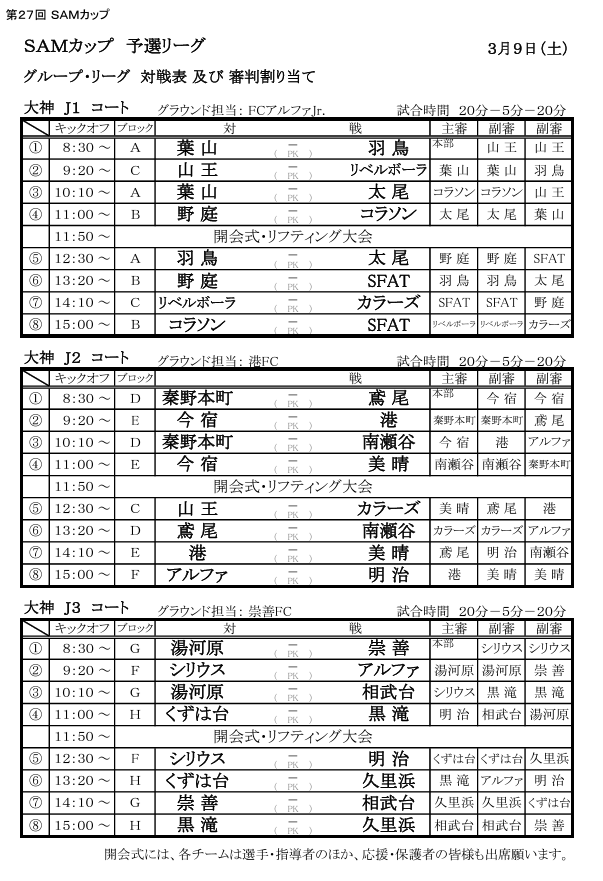 第27回 SAMカップ
SAMカップ 予選リーグ 3月9日(土)
グループ・リーグ 対戦表 及び 審判割り当て
大神 J1 コート グラウンド担当: FCアルファJr. 試合時間 20分－5分－20分
キックオフ ブロック 対 戦 主審 副審 副審
① 8:30～ A 葉山 － ( PK ) 羽鳥 本部 山王 山王
② 9:20～ C 山王 － ( PK ) リベルボーラ 葉山 葉山 羽鳥
③ 10:10～ A 葉山 － ( PK ) 太尾 コラソン コラソン 山王
④ 11:00～ B 野庭 － ( PK ) コラソン 太尾 太尾 葉山
11:50～ 開会式・リフティング大会
⑤ 12:30～ A 羽鳥 － ( PK ) 太尾 野庭 野庭 SFAT
⑥ 13:20～ B 野庭 － ( PK ) SFAT 羽鳥 羽鳥 太尾
⑦ 14:10～ C リベルボーラ － ( PK ) カラーズ SFAT SFAT 野庭
⑧ 15:00～ B コラソン － ( PK ) SFAT リベルボーラ リベルボーラ カラーズ
大神 J2 コート グラウンド担当: 港FC 試合時間 20分－5分－20分
キックオフ ブロック 戦 主審 副審 副審
① 8:30～ D 秦野本町 － ( PK ) 鳶尾 本部 今宿 今宿
② 9:20～ E 今宿 － ( PK ) 港 秦野本町 秦野本町 鳶尾
③ 10:10～ D 秦野本町 － ( PK ) 南瀬谷 今宿 港 アルファ
④ 11:00～ E 今宿 － ( PK ) 美晴 南瀬谷 南瀬谷 秦野本町
11:50～ 開会式・リフティング大会
⑤ 12:30～ C 山王 － ( PK ) カラーズ 美晴 鳶尾 港
⑥ 13:20～ D 鳶尾 － ( PK ) 南瀬谷 カラーズ カラーズ アルファ
⑦ 14:10～ E 港 － ( PK ) 美晴 鳶尾 明治 南瀬谷
⑧ 15:00～ F アルファ － ( PK ) 明治 港 美晴 美晴
大神 J3 コート グラウンド担当: 崇善FC 試合時間 20分－5分－20分
キックオフ ブロック 対 戦 主審 副審 副審
① 8:30～ G 湯河原 － ( PK ) 崇善 本部 シリウス シリウス
② 9:20～ F シリウス － ( PK ) アルファ 湯河原 湯河原 崇善
③ 10:10～ G 湯河原 － ( PK ) 相武台 シリウス 黒滝 黒滝
④ 11:00～ H くずは台 － ( PK ) 黒滝 明治 相武台 湯河原
11:50～ 開会式・リフティング大会
⑤ 12:30～ F シリウス － ( PK ) 明治 くずは台 くずは台 久里浜
⑥ 13:20～ H くずは台 － ( PK ) 久里浜 黒滝 アルファ 明治
⑦ 14:10～ G 崇善 － ( PK ) 相武台 久里浜 久里浜 くずは台
⑧ 15:00～ H 黒滝 － ( PK ) 久里浜 相武台 相武台 崇善
開会式には、各チームは選手・指導者のほか、応援・保護者の皆様も出席願います。